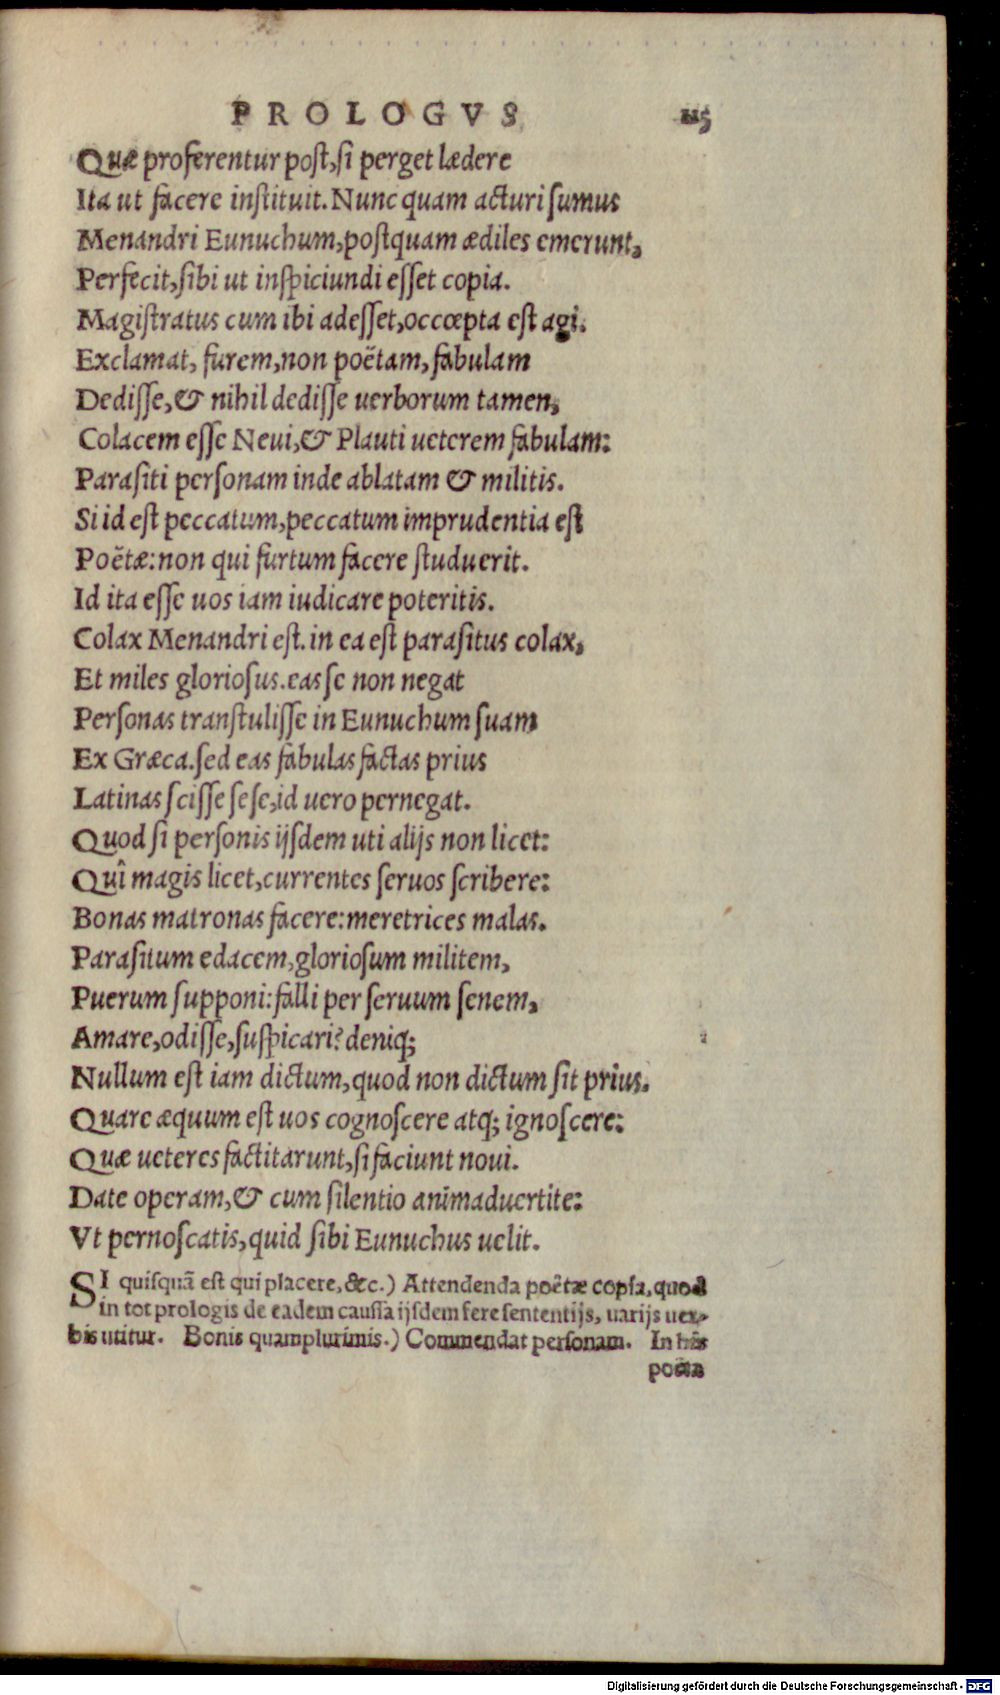 PROLOGVS 115
Quæ proferentur post, si perget lædere
Ita ut facere instituit. Nunc quam acturi sumus
Menandri Eunuchum, postquam ædiles emerunt,
Perfecit, sibi ut inspiciundi esset copia.
Magistratus cum ibi adesset, occœpta est agi.
Exclamat, furem, non poëtam, fabulam
Dedisse, & nihil dedisse uerborum tamen,
Colacem esse Neui, & Plauti ueterem fabulam:
Parasiti personam inde ablatam & militis.
Si id est peccatum, peccatum imprudentia est
Poëtæ: non qui furtum facere studuerit.
Id ita esse uos iam iudicare poteritis.
Colax Menandri est. in ea est parasitus colax,
Et miles gloriosus. eas se non negat
Personas transtulisse in Eunuchum suam
Ex Græca. sed eas fabulas factas prius
Latinas scisse sese, id uero pernegat.
Quod si personis ijsdem uti alijs non licet:
Quî magis licet, currentes seruos scribere:
Bonas matronas facere: meretrices malas.
Parasitum edacem, gloriosum militem,
Puerum supponi: falli per seruum senem,
Amare, odisse, suspicari? deniq;
Nullum est iam dictum, quod non dictum sit prius.
Quare æquum est uos cognoscere atq; ignoscere:
Quæ ueteres factitarunt, si faciunt noui.
Date operam, & cum silentio animaduertite:
Vt pernoscatis, quid sibi Eunuchus uelit.
SI quisquã est qui placere, &c.) Attendenda poëtæ copia, quod
in tot prologis de eadem caussa ijsdem fere sententijs, uarijs uer-
bis utitur. Bonis quamplurimis.) Commendat personam. In his
poëta
Digitalisierung gefördert durch die Deutsche Forschungsgemeinschaft - DFG